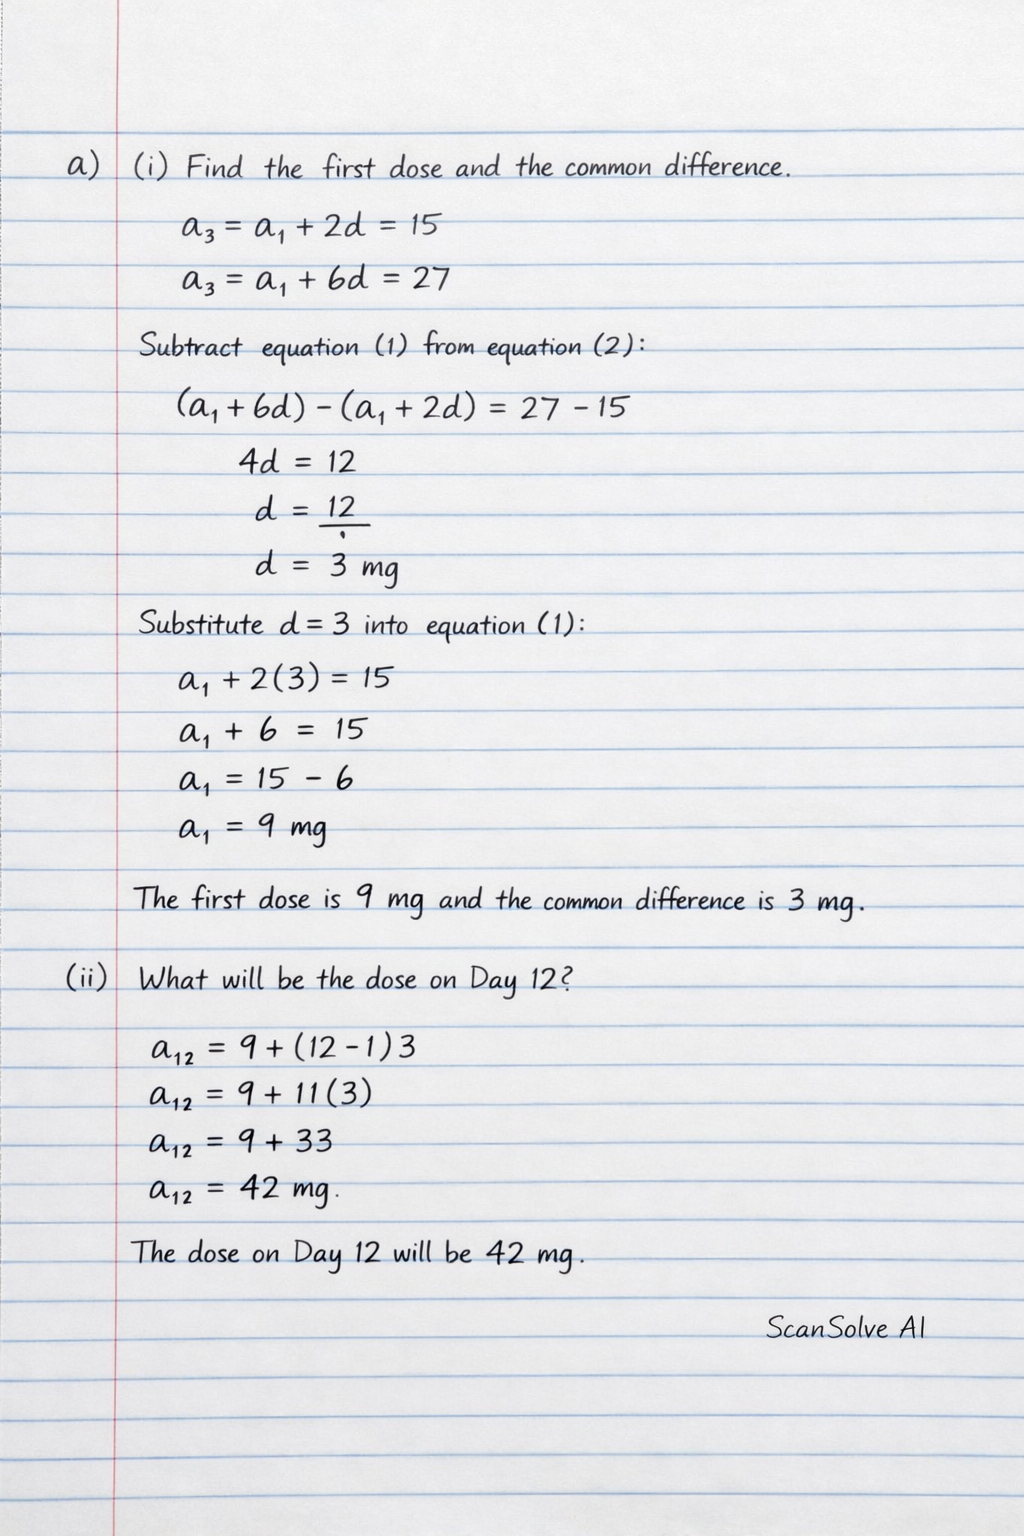 a) (i) Find the first dose and the common difference.
a₃ = a₁ + 2d = 15
a₃ = a₁ + 6d = 27
Subtract equation (1) from equation (2):
(a₁ + 6d) - (a₁ + 2d) = 27 - 15
4d = 12
d = 12
d = 3 mg
Substitute d = 3 into equation (1):
a₁ + 2(3) = 15
a₁ + 6 = 15
a₁ = 15 - 6
a₁ = 9 mg
The first dose is 9 mg and the common difference is 3 mg.
(ii) What will be the dose on Day 12?
a₁₂ = 9 + (12 - 1)3
a₁₂ = 9 + 11(3)
a₁₂ = 9 + 33
a₁₂ = 42 mg.
The dose on Day 12 will be 42 mg.
ScanSolve AI